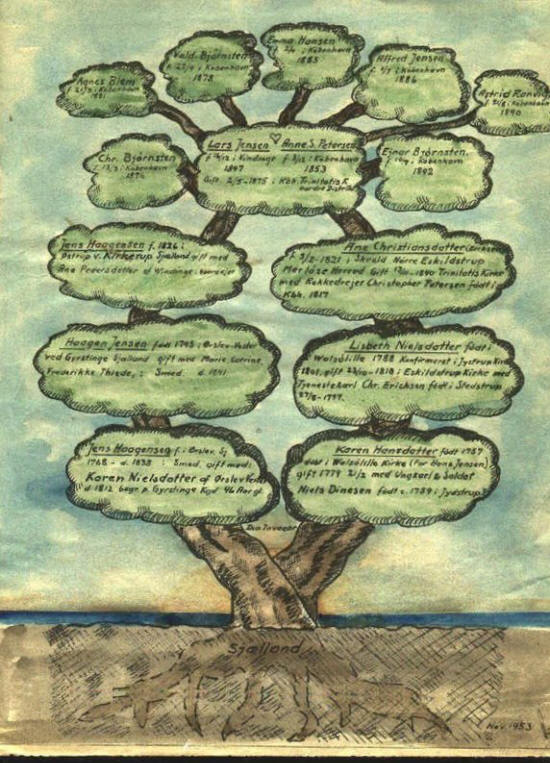 Emma Hansen
København
1885
Vald. Bjørnsten
København
1878
Alfred Jensen
København
1886
Agnes Blem
København
Astrid
København
1890
Lars Jensen Anne S. Petersen
Kindinge København
1847 1853
Gift 2/5-1875 i Kbh. Trinitatis K
Chr. Bjørnsten
København
Ejnar Bjørnsten
København
1892
Jens Haagensen f. 1826 i
Ostrup v. Kirkerup Sjælland gift med
Ane Pedersdatter af
Ane Christiansdatter
f. 5/2-1821 i Skrold Nørre Eskildstrup
Merløse Herred Gift 1840 Trinitatis Kirke
med Rokkedrejer Christopher Petersen født i
Kbh. 1817
Haagen Jensen født 1795 i Ørslev
ved Gyrstinge Sjælland gift med Marie Catrine
Frederikke Thiede, Smed. d. 1841.
Lisbeth Nielsdatter født i
Valsølille 1788 Konfirmeret i Jystrup Kirke
gift 1818 i Eskildstrup Kirke med
Tjenestekarl Chr. Ericksen født i Stedstrup
Jens Haagensen f. i Ørslev. Sj
1768 - d. 1838 : Smed. gift med:
Karen Nielsdatter af Ørslev
d. 1812 begr. p. Gyrstinge Kgd 46 Aar gl.
Karen Hansdatter født 1757
døbt i Valsølille Kirke (Far Hans Jensen)
gift 1779 21/2 med Ungkarl & Soldat
Niels Dinesen født c. 1759 i Jystrup
Sjælland
Nov. 1953